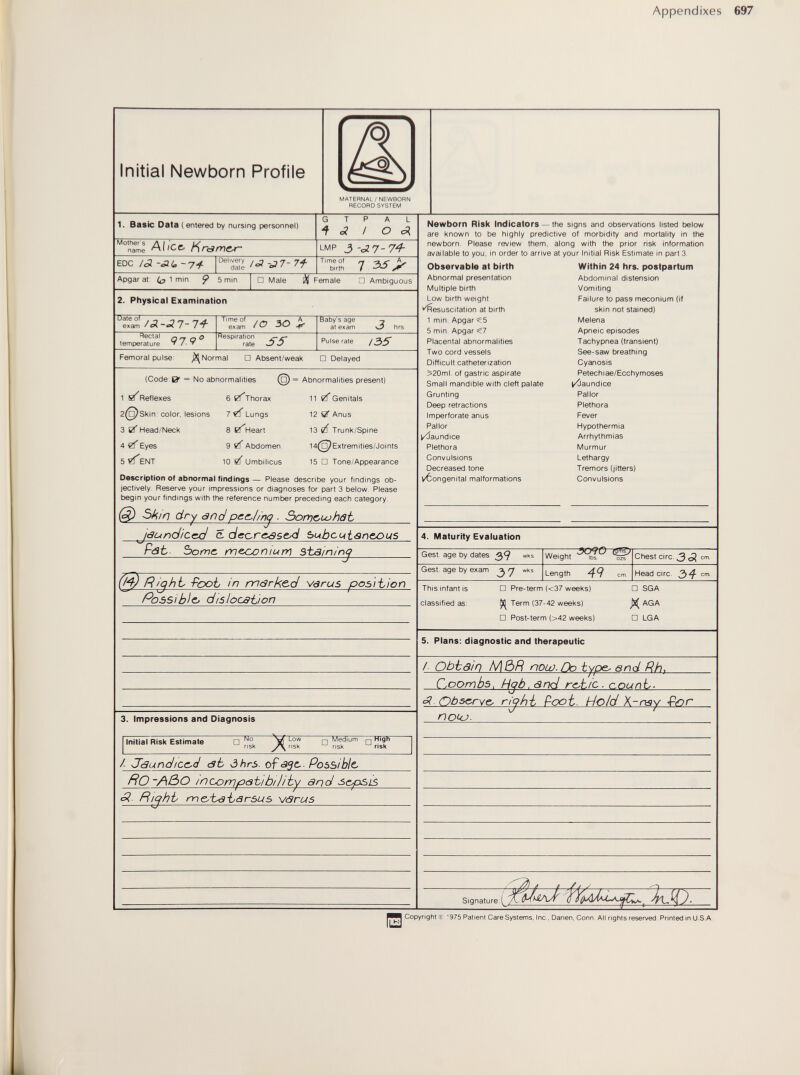 Appendixes 697
Initial Newborn Profile
MATERNAL / NEWBORN
RECORD SYSTEM
1. Basic Data (entered by nursing personnel)
G T P A L
4 2 1 0 2
Mother's name Alice Kramer
LMP 3-27-74
EDC 12-26-74 Delivery date 12-27-74 Time of birth 7 35 A
Apgar at: 6 1 min. 9 5 min. □ Male ☒ Female □ Ambiguous
2. Physical Examination
Date of exam 12-27-74 Time of exam 10 30 A Baby's age at exam 3 hrs
Rectal temperature 97.9° Respiration rate 55 Pulse rate 135
Femoral pulse: ☒ Normal □ Absent/weak □ Delayed
(Code ☑ = No abnormalities ⊡ = Abnormalities present)
1 ☑ Reflexes 6 ☑ Thorax 11 ☑ Genitals
2 ⊡ Skin: color, lesions 7 ☑ Lungs 12 ☑ Anus
3 ☑ Head/Neck 8 ☑ Heart 13 ☑ Trunk/Spine
4 ☑ Eyes 9 ☑ Abdomen 14 ⊡ Extremities/Joints
5 ☑ ENT 10 ☑ Umbilicus 15 □ Tone/Appearance
Description of abnormal findings — Please describe your findings ob-
jectively. Reserve your impressions or diagnoses for part 3 below. Please
begin your findings with the reference number preceding each category.
② Skin dry and peeling. Somewhat
jaundiced c̄ decreased subcutaneous
Fat. Some meconium staining
⑭ Right foot in marked varus position
Possible dislocation
3. Impressions and Diagnosis
Initial Risk Estimate □ No risk ☒ Low risk □ Medium risk □ High risk
1. Jaundiced at 3 hrs. of age. Possible
RO-ABO incompatibility and sepsis
2. Right metatarsus varus
Newborn Risk Indicators — the signs and observations listed below
are known to be highly predictive of morbidity and mortality in the
newborn. Please review them, along with the prior risk information
available to you, in order to arrive at your Initial Risk Estimate in part 3.
Observable at birth
Abnormal presentation
Multiple birth
Low birth weight
✓Resuscitation at birth
1 min. Apgar ≤5
5 min. Apgar ≤7
Placental abnormalities
Two cord vessels
Difficult catheterization
>20ml. of gastric aspirate
Small mandible with cleft palate
Grunting
Deep retractions
Imperforate anus
Pallor
✓Jaundice
Plethora
Convulsions
Decreased tone
✓Congenital malformations
Within 24 hrs. postpartum
Abdominal distension
Vomiting
Failure to pass meconium (if
skin not stained)
Melena
Apneic episodes
Tachypnea (transient)
See-saw breathing
Cyanosis
Petechiae/Ecchymoses
✓Jaundice
Pallor
Plethora
Fever
Hypothermia
Arrhythmias
Murmur
Lethargy
Tremors (jitters)
Convulsions
4. Maturity Evaluation
Gest. age by dates 39 wks. Weight 3090 gms lbs. ozs. Chest circ. 32 cm.
Gest. age by exam 37 wks. Length 49 cm. Head circ. 34 cm.
This infant is □ Pre-term (<37 weeks) □ SGA
classified as: ☒ Term (37-42 weeks) ☒ AGA
□ Post-term (>42 weeks) □ LGA
5. Plans: diagnostic and therapeutic
1. Obtain MBR now. Do type and Rh,
Coombs, Hgb, and retic. count.
2. Observe right foot. Hold X-ray for
now.
Signature: Robert Washington, M.D.
Copyright © 1975 Patient Care Systems, Inc., Darien, Conn. All rights reserved. Printed in U.S.A.